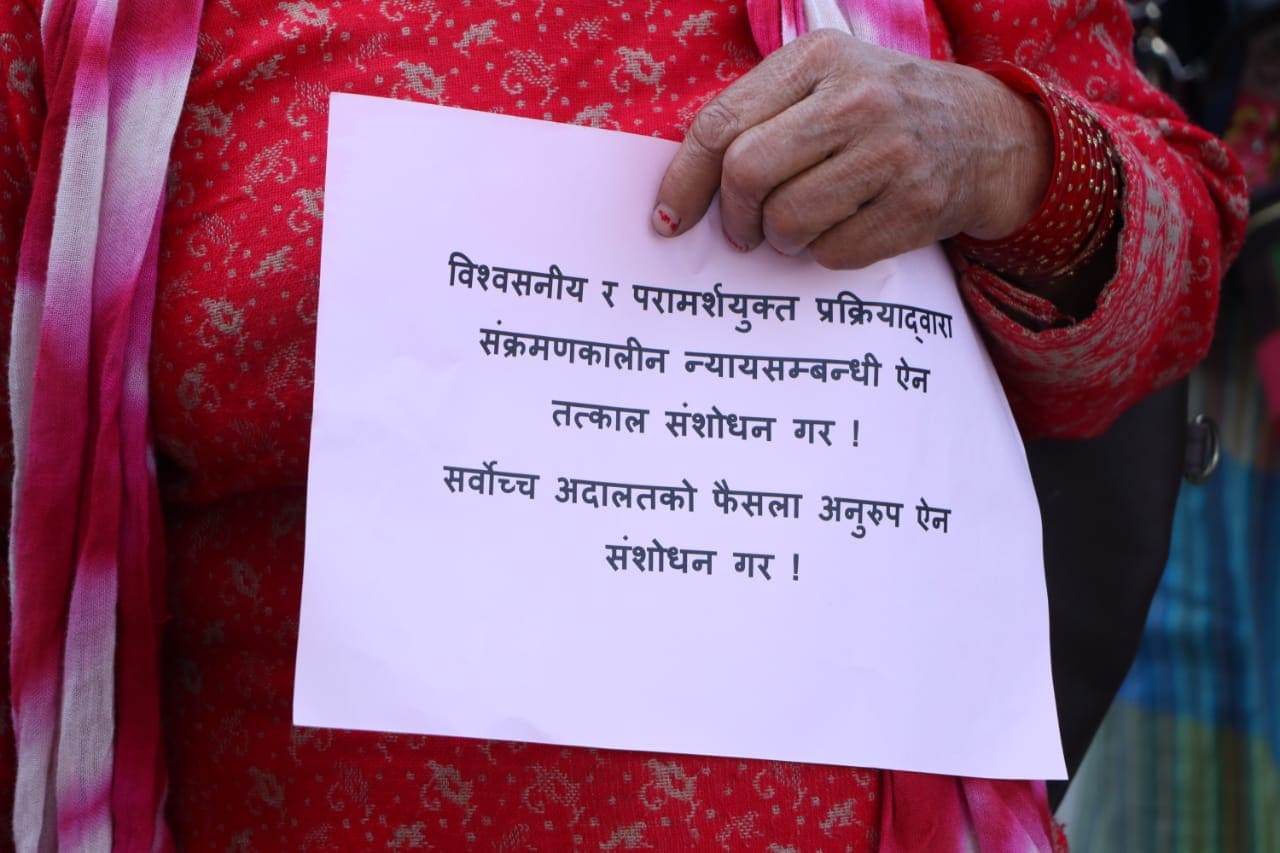 विश्वसनीय र परामर्शयुक्त प्रक्रियाद्‌वारा
संक्रमणकालीन न्यायसम्बन्धी ऐन
तत्काल संशोधन गर !
सर्वोच्च अदालतको फैसला अनुरुप ऐन
संशोधन गर !